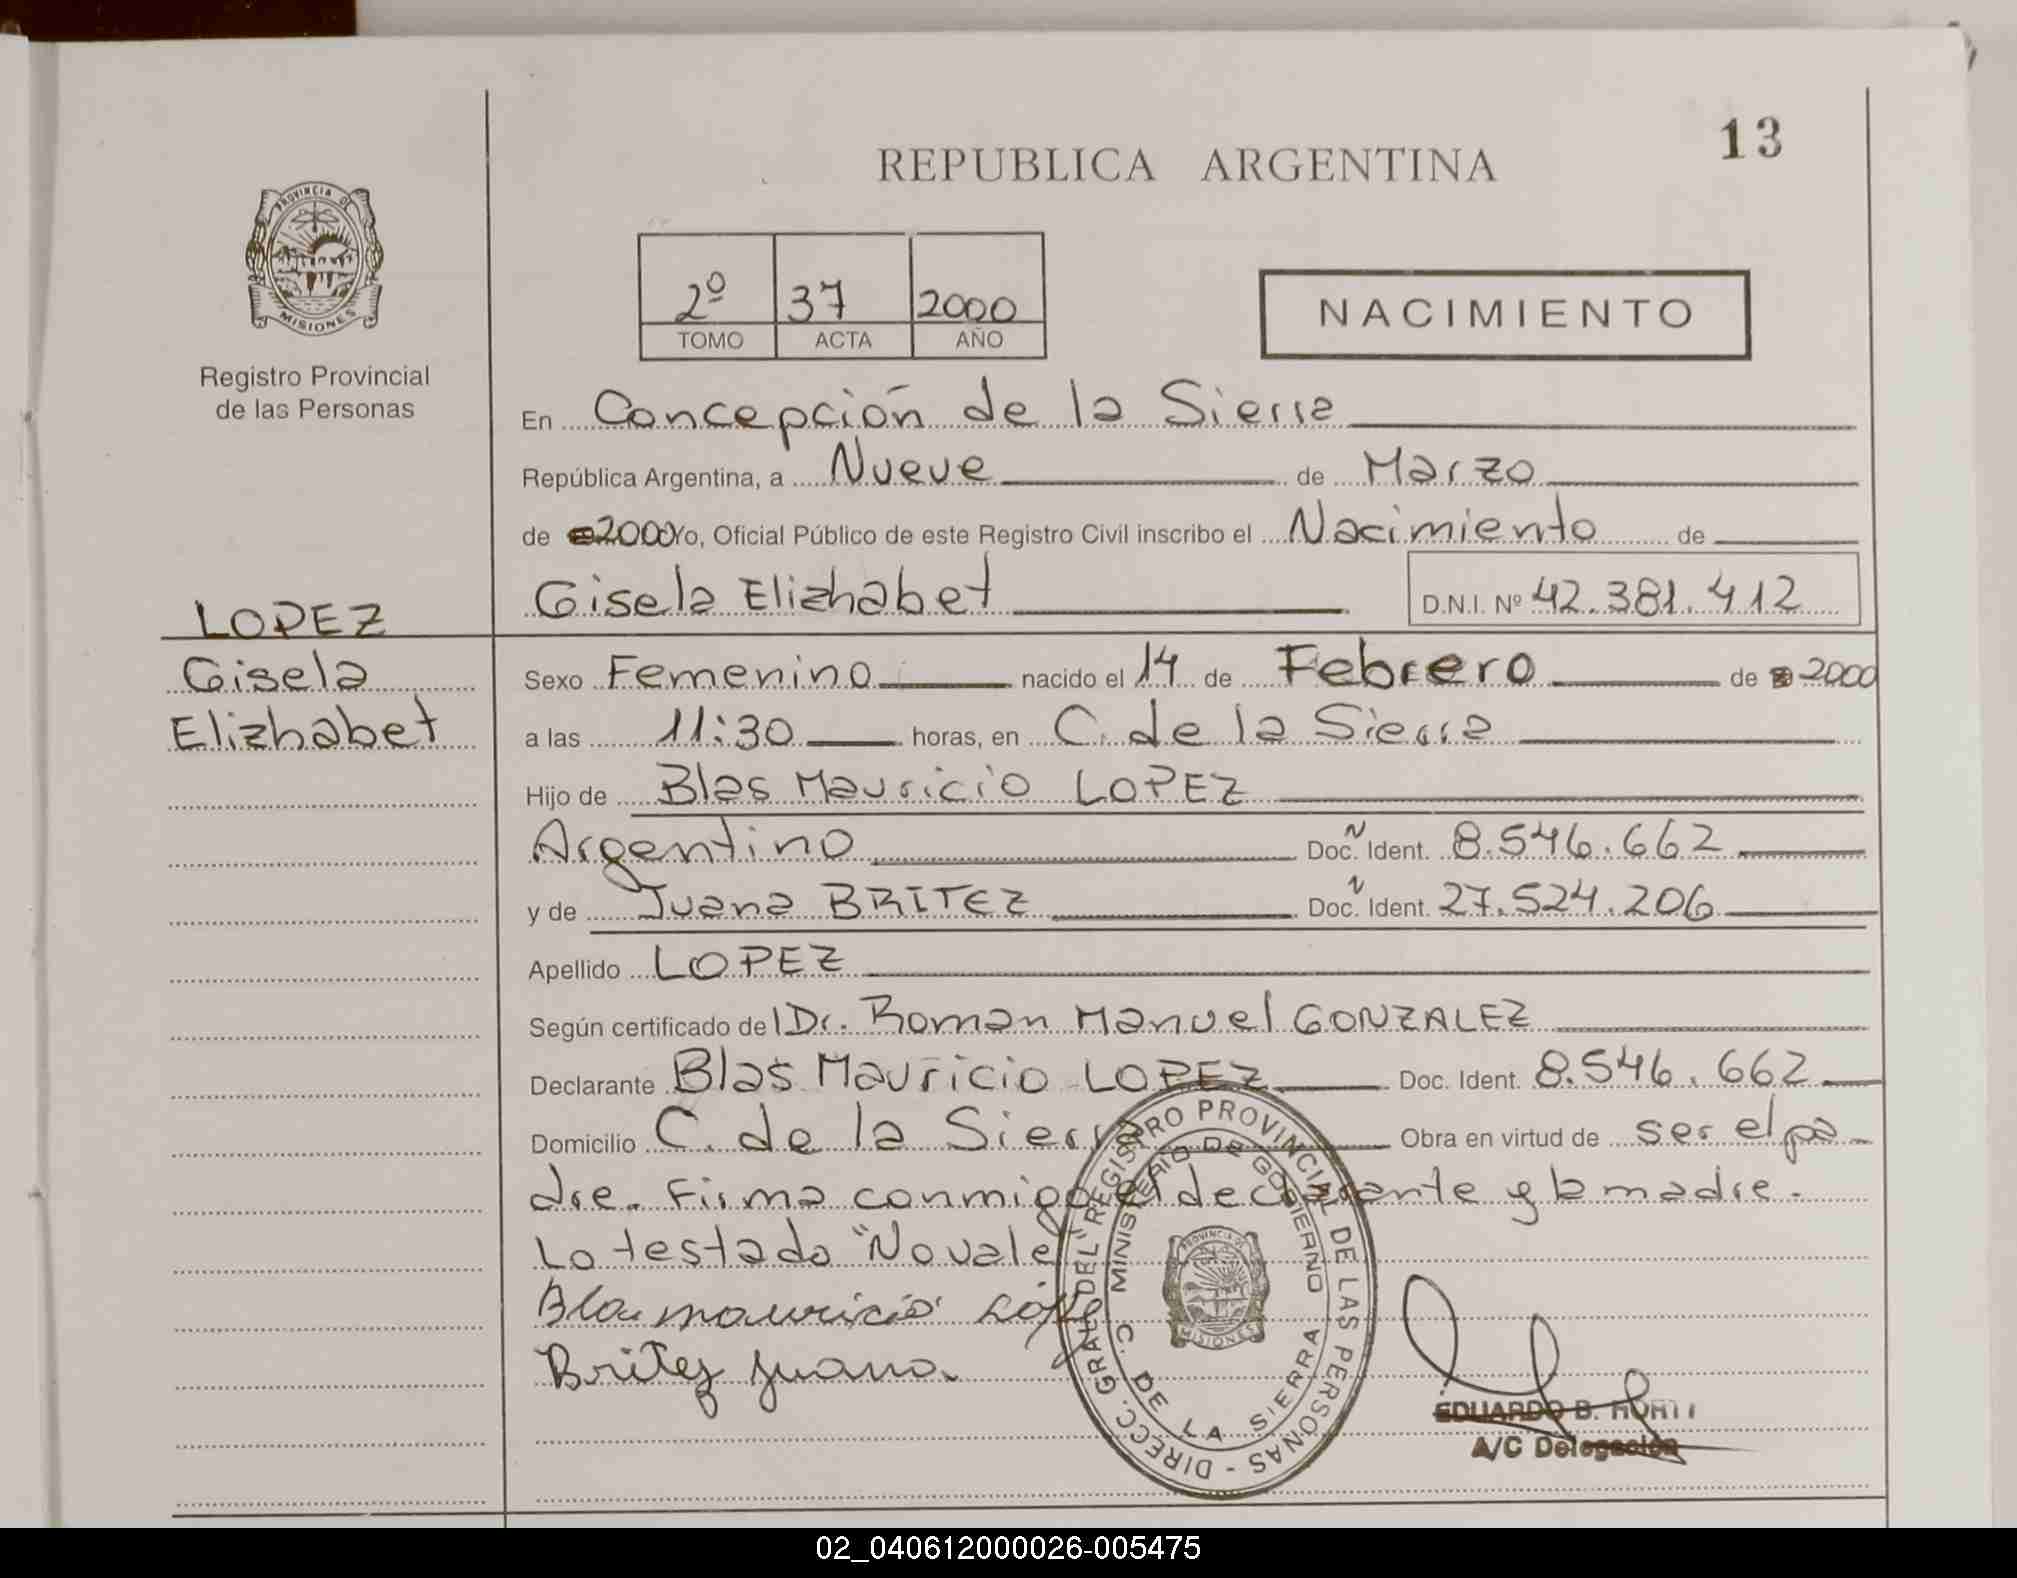 13
REPUBLICA ARGENTINA
PROVINCIA DE
MISIONES
Registro Provincial
de las Personas
2º 37 2000
TOMO ACTA AÑO
NACIMIENTO
En Concepción de la Sierra
República Argentina, a Nueve de Marzo
de 2000 Yo, Oficial Público de este Registro Civil inscribo el Nacimiento de
Gisela Elizhabet D.N.I. Nº 42.381.412
LOPEZ
Gisela
Elizhabet
Sexo Femenino nacido el 14 de Febrero de 2000
a las 11:30 horas, en C. de la Sierra
Hijo de Blas Mauricio LOPEZ
Argentino Doc. Ident. 8.546.662
y de Juana BRITEZ Doc. Ident. 27.524.206
Apellido LOPEZ
Según certificado del Dr. Roman Manuel GONZALEZ
Declarante Blas Mauricio LOPEZ Doc. Ident. 8.546.662
Domicilio C. de la Sierra Obra en virtud de ser el pa
dre. Firma conmigo el declarante y la madre.
Lo testado "No vale
Blas mauricio López
Britez Juana.
DIRECC. GRAL. DEL "REGISTRO PROVINCIAL DE LAS PERSONAS -
MINISTERIO DE GOBIERNO
C. DE LA SIERRA
PROVINCIA DE
MISIONES
EDUARDO B.
A/C Delegación
02_040612000026-005475